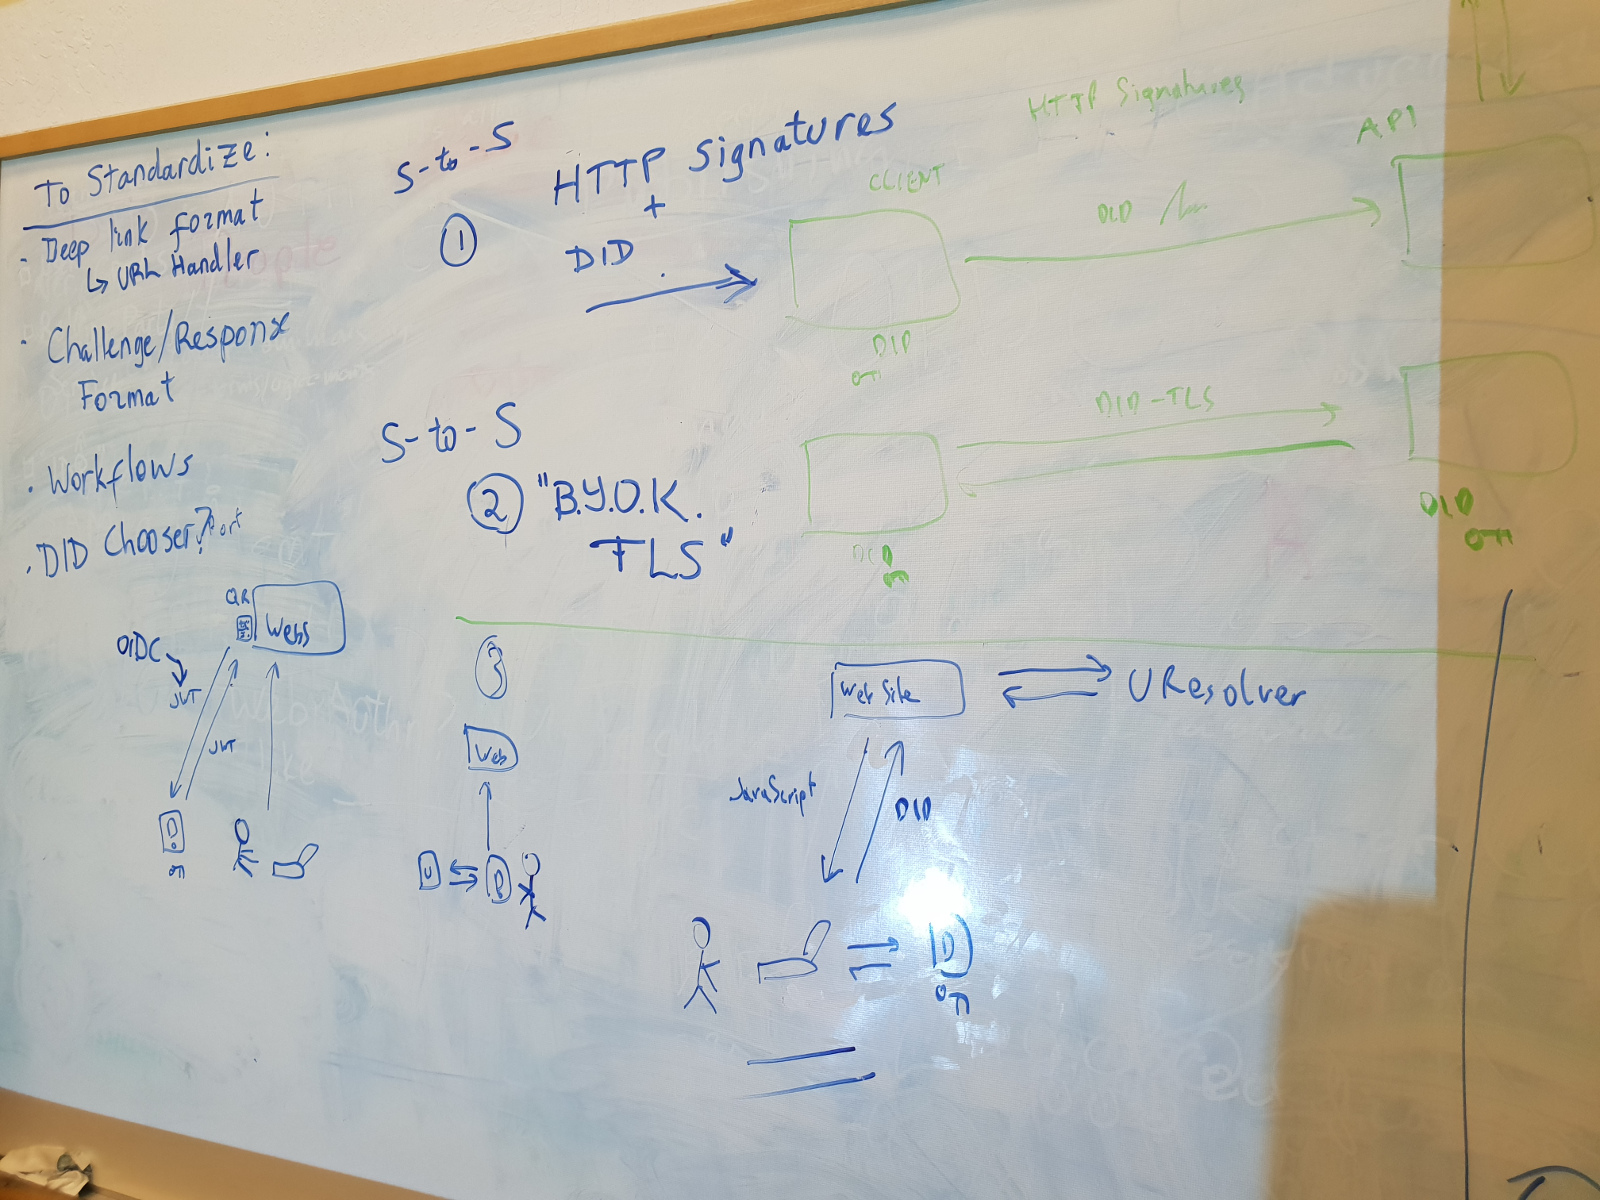 To Standardize:
- Deep link format
↳ URL Handler
· Challenge/Response
Format
· Workflows
· DID Chooser?
S-to-S
①
HTTP Signatures
+
DID
S-to-S
② "B.Y.O.K.
TLS"
HTTP Signatures
CLIENT
DID
API
DID
DID-TLS
DID
DID
QR
Webs
OIDC
JWT
JWT
D
③
Web
U
D
Web Site
UResolver
JavaScript
DID
D